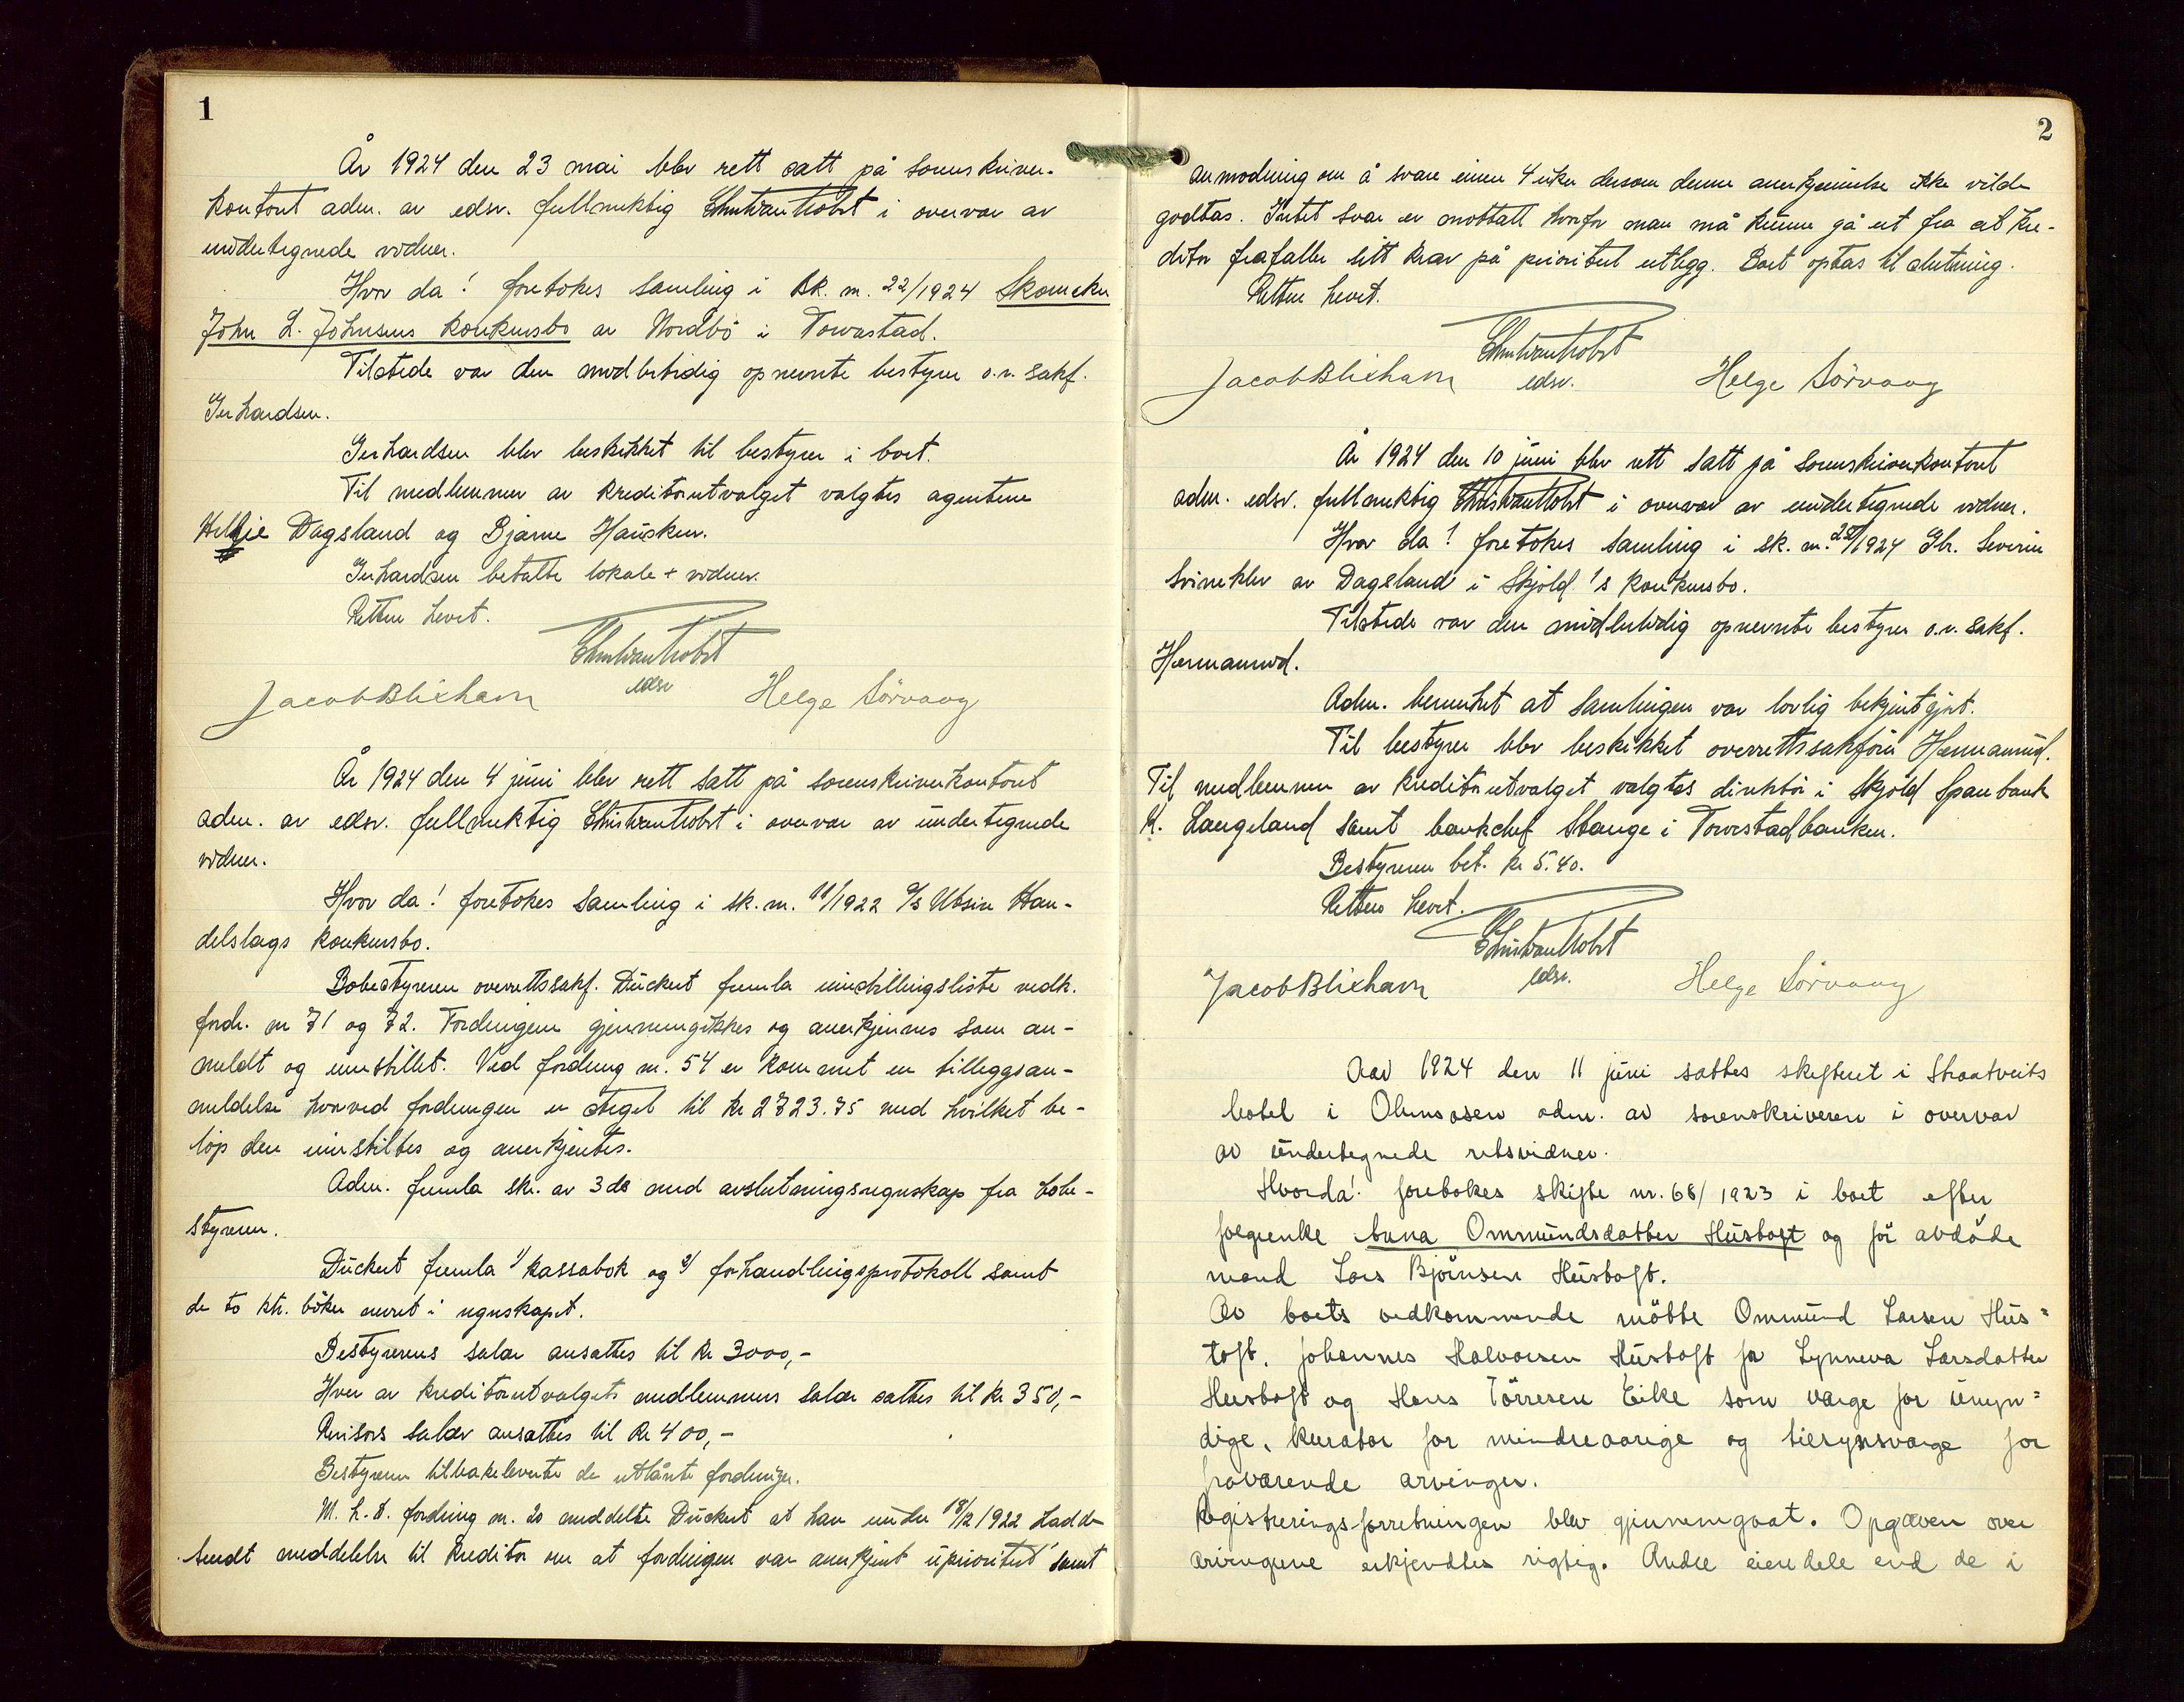 1
År 1924 den 23 mai blev rett satt på sorenskriver-
kontoret adm. av edsv. fullmektig Christian Trobst i overvær av
undertegnede vidner.
Hvor da! foretokes samling i sk. nr. 22/1924 Skomaker
John L. Johnsens konkursbo av Nordbö i Torvastad.
Tilstede var den midlertidig opnevnte bestyrer o.r. sakf.
Gerhardsen.
Gerhardsen blev beskikket til bestyrer i boet.
Til medlemmer av kreditorutvalget valgtes agentene
Dagsland og Bjarne Hausken.
Gerhardsen betalte lokale + vidner.
Retten hevet.
Christian Trobst
edsv
Jacob Blixhavn Helge Sörvaag
År 1924 den 4 juni blev rett satt på sorenskriverkontoret
adm. av edsv. fullmektig Christian Trobst i overvær av undertegnede
vidner.
Hvor da! foretokes samling i sk. nr. 11/1922 A/s Utsire Han-
delslags konkursbo.
Bobestyreren overrettssakf. Dückert fremla innstillingsliste vedk.
fordr. nr 71 og 72. Fordringene gjennemgikkes og anerkjennes som an-
meldt og innstillet. Ved fordring nr. 54 er kommet en tilleggsan-
meldelse hvorved fordringen er steget til kr 2723.75 med hvilket be-
löp den innstiltes og anerkjentes.
Adm. fremla skr. av 3 ds med avslutningsregnskap fra bobe-
styreren.
Dückert fremla 1/ kassabok og 2/ forhandlingsprotokoll samt
de to ktr. böker nevnt i regnskapet.
Bestyrerens salær ansattes til kr 3000,-
Hver av kreditorutvalgets medlemmers salær sattes til kr 350,-
Revisors salær ansattes til kr 400,-
Bestyreren tilbakeleverte de utlånte fordringer.
M. h. t. fordring nr. 20 meddelte Dückert at han under 18/2 1922 hadde
sendt meddelelse til kreditor om at fordringen var anerkjent uprioritert samt
2
anmodning om å svare innen 4 uker dersom denne anerkjennelse ikke vilde
godtas. Intet svar er mottatt hvorfor man må kunne gå ut fra at kre-
ditor frafaller sitt krav på prioritert utlegg. Boet optas til slutning.
Retten hevet.
Christian Trobst
Jacob Blixhavn edsv. Helge Sörvaag
År 1924 den 10 juni blev rett satt på sorenskriverkontoret
adm. edsv. fullmektig Christian Trobst i overvær av undertegnede vidner.
Hvor da! foretokes samling i sk. nr. 25/1924 Gbr. Severin
Svineklev av Dagsland i Skjold's konkursbo.
Tilstede var den midlertidig opnevnte bestyrer o.r. sakf.
Hermanrud.
Adm. bemerket at samlingen var lovlig bekjentgjort.
Til bestyrer blev beskikket overrettssakförer Hermanrud.
Til medlemmer av kreditorutvalget valgtes direktör i Skjold Sparebank
K. Langeland samt bankchef Stange i Torvestadbanken.
Bestyreren bet. kr 5.40.
Retten hevet.
Christian Trobst
Jacob Blixhavn edsv. Helge Sörvaag
Aar 1924 den 11 juni sattes skifteret i Straatveits
hotel i Ølensosen adm. av sorenskriveren i overvær
av undertegnede retsvidner.
Hvorda! foretokes skifte nr. 68/1923 i boet efter
føgrenke Anna Ommundsdatter Hustoft og för avdöde
mand Lars Bjørnsen Hustoft.
Av boets vedkommende mötte Ommund Larsen Hus=
toft, Johannes Halvorsen Hustoft for Synneva Larsdatter
Hustoft og Hans Törresen Eike som værge for umyn=
dige, kurator for mindreaarige og tilsynsværge for
fraværende arvinger.
Registreringsforretningen blev gjennemgaat. Opgaven over
arvingene erkjendtes rigtig. Andre eiendele end de i